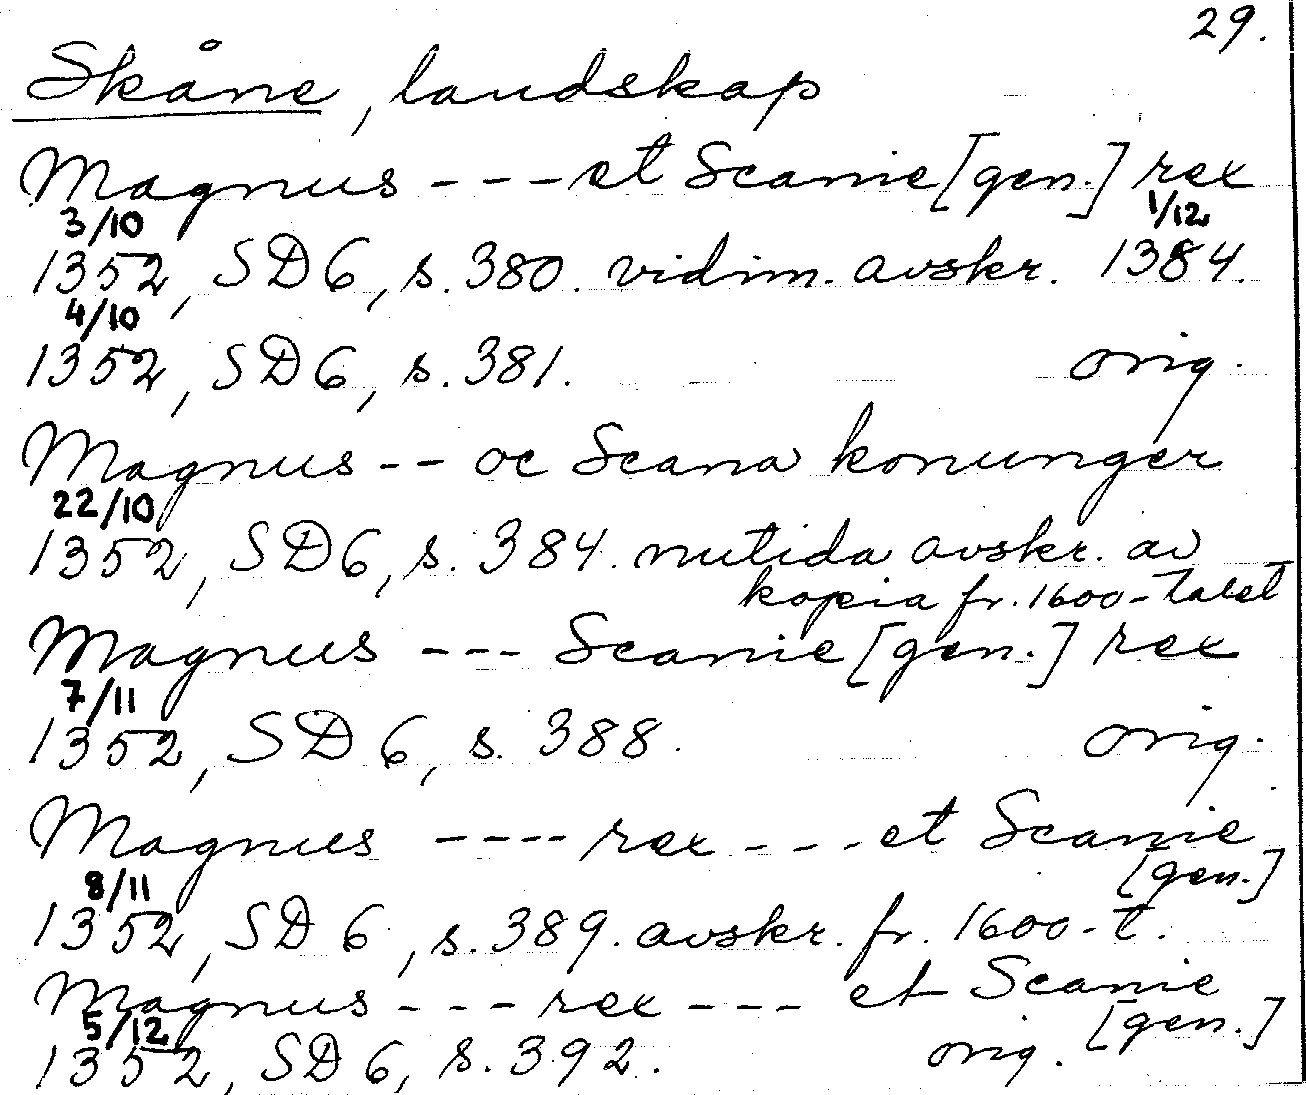 29.
Skåne, landskap
Magnus --- et Scanie [gen.] rex
3/10 1/12
1352, SD 6, s. 380. vidim. avskr. 1384.
4/10
1352, SD 6, s. 381. orig.
Magnus -- oc Scana konunger
22/10
1352, SD 6, s. 384. nutida avskr. av
kopia fr. 1600-talet
Magnus --- Scanie [gen.] rex
7/11
1352, SD 6, s. 388. orig.
Magnus ---- rex --- et Scanie
[gen.]
8/11
1352, SD 6, s. 389. avskr. fr. 1600-t.
Magnus --- rex --- et Scanie
[gen.]
5/12
1352, SD 6, s. 392. orig.